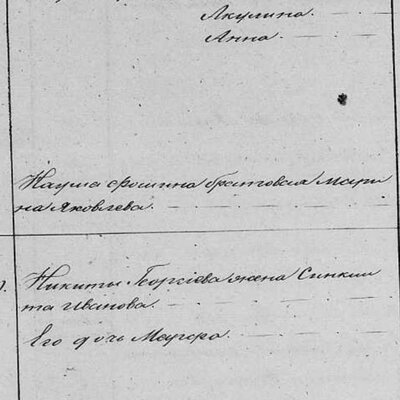 Акулина.
Анна.
Наума Фомина братовая Мари
на Яковлева.
Никиты Георгіева жена Синкли
та Иванова.
Его дочь Меѳера.